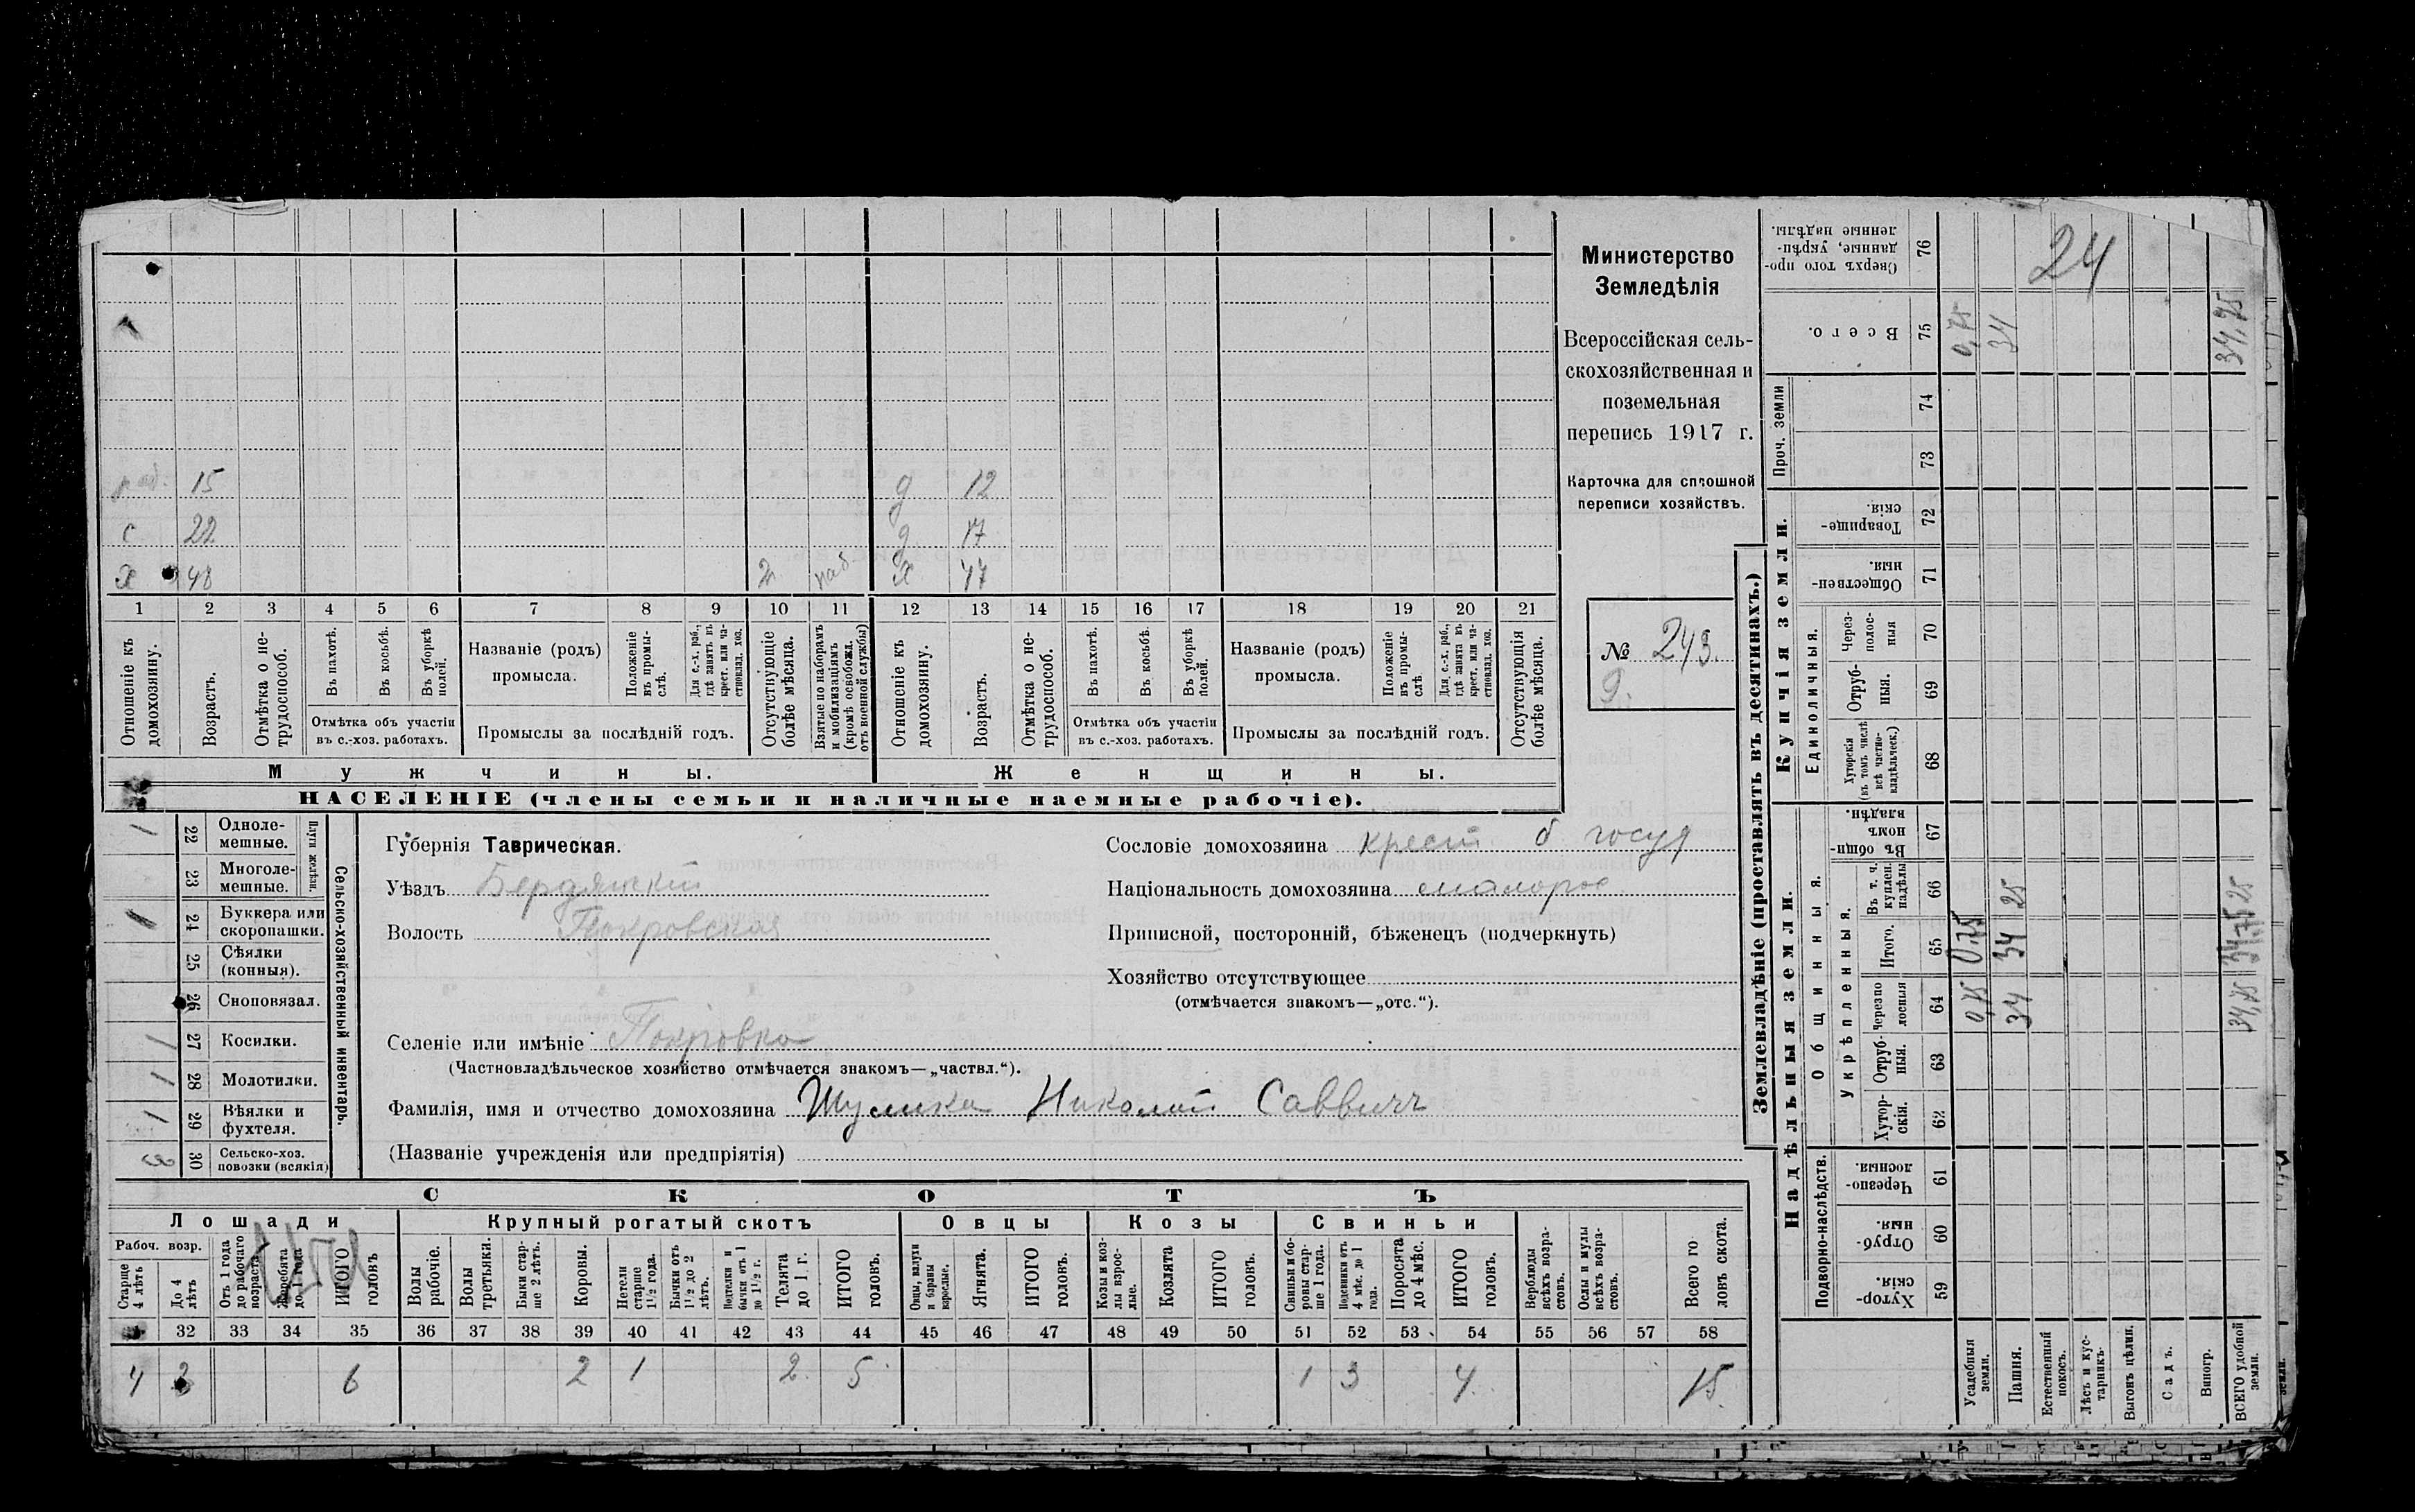 Министерство
Земледѣлія
Всероссійская сель-
скохозяйственная и
поземельная
перепись 1917 г.
Карточка для сплошной
переписи хозяйствъ.
№ 243.
9.
15 д 12
с 22 д 17
х 48 2 наб х 47
1 2 3 4 5 6 7 8 9 10 11 12 13 14 15 16 17 18 19 20 21
Отношеніе къ домохозяину.
Возрастъ.
Отмѣтка о не-трудоспособ.
Въ пахотѣ.
Въ косьбѣ.
Въ уборкѣ полей.
Отмѣтка объ участіи
въ с.-хоз. работахъ.
Названіе (родъ)
промысла.
Положеніе въ промы-слѣ.
Для с.-х. раб., гдѣ занятъ въ крест. или ча-стновлад. хоз.
Промыслы за послѣдній годъ.
Отсутствующіе болѣе мѣсяца.
Взятые по наборамъ и мобилизаціямъ (кромѣ освобожд. отъ военной службы)
Отношеніе къ домохозяину.
Возрастъ.
Отмѣтка о не-трудоспособ.
Въ пахотѣ.
Въ косьбѣ.
Въ уборкѣ полей.
Отмѣтка объ участіи
въ с.-хоз. работахъ.
Названіе (родъ)
промысла.
Положеніе въ промы-слѣ
Для с.-х. раб., гдѣ занята въ крест. или ча-стновлад. хоз.
Промыслы за послѣдній годъ.
Отсутствующія болѣе мѣсяца.
Мужчины. Женщины.
НАСЕЛЕНІЕ (члены семьи и наличные наемные рабочіе).
Сельско-хозяйственный инвентарь.
Плуги желѣзн.
1 22 Одноле-мешные.
23 Многоле-мешные.
1 24 Буккера или скоропашки.
25 Сѣялки (конныя).
26 Сноповязал.
1 27 Косилки.
1 28 Молотилки.
1 29 Вѣялки и фухтеля.
3 30 Сельско-хоз. повозки (всякія)
Губернія Таврическая.
Уѣздъ Бердянскій
Волость Покровская
Селеніе или имѣніе Покровка
(Частновладѣльческое хозяйство отмѣчается знакомъ—„частвл.“).
Фамилія, имя и отчество домохозяина Шулика Николай Саввичъ
(Названіе учрежденія или предпріятія)
Сословіе домохозяина крест б госуд
Національность домохозяина малорос
Приписной, посторонній, бѣженецъ (подчеркнуть)
Хозяйство отсутствующее
(отмѣчается знакомъ—„отс.“).
СКОТЪ
Лошади Крупный рогатый скотъ Овцы Козы Свиньи
Рабоч. возр.
Старше 4 лѣтъ
До 4 лѣтъ
Отъ 1 года до рабочаго возраста
Жеребята до 1 года
ИТОГО головъ
Волы рабочіе.
Волы третьяки.
Быки стар-ше 2 лѣтъ.
Коровы.
Нетели старше 1½ года.
Бычки отъ 1½ до 2 лѣтъ.
Подтелки и бычки отъ 1 до 1½ г.
Телята до 1 г.
ИТОГО головъ.
Овцы, валухи и бараны взрослые.
Ягнята.
ИТОГО головъ.
Козы и коз-лы взрос-лые.
Козлята
ИТОГО головъ.
Свиньи и бо-ровы стар-ше 1 года.
Подсвинки отъ 4 мѣс. до 1 года.
Поросята до 4 мѣс.
ИТОГО головъ.
Верблюды всѣхъ возра-стовъ.
Ослы и мулы всѣхъ возра-стовъ.
Всего го ловъ скота.
32 33 34 35 36 37 38 39 40 41 42 43 44 45 46 47 48 49 50 51 52 53 54 55 56 57 58
4 2 6 2 1 2 5 1 3 4 15
Землевладѣніе (проставлять въ десятинахъ.)
Надѣльныя земли. Купчія земли. Проч. земли
Подворно-наслѣдств.
Общинныя.
Укрѣпленныя.
Единоличныя.
Хутор-скія. 59
Отруб-ныя. 60
Черезпо-лосныя. 61
Хутор-скія. 62
Отруб-ныя. 63
Черезпо лосныя 64 0,75 34 34,75
Итого. 65 0,75 34 34,75
Въ т. ч. куплен. надѣлы 66 25 25
Въ общи-номъ владѣн. 67
Хуторскія (въ томъ числѣ всѣ частно-владѣльческ.) 68
Отруб-ныя. 69
Через-полос-ныя 70
Обществен-ныя. 71
Товарище-скія. 72
73
74
Всего. 75 0,75 34 34,75
Сверхъ того про-данные, укрѣп-ленные надѣлы. 76
24
Усадебныя земли.
Пашня.
Естественный покосъ.
Лѣсъ и кус-тарникъ.
Выгонъ цѣлин.
Садъ.
Виногр.
ВСЕГО удобной земли.